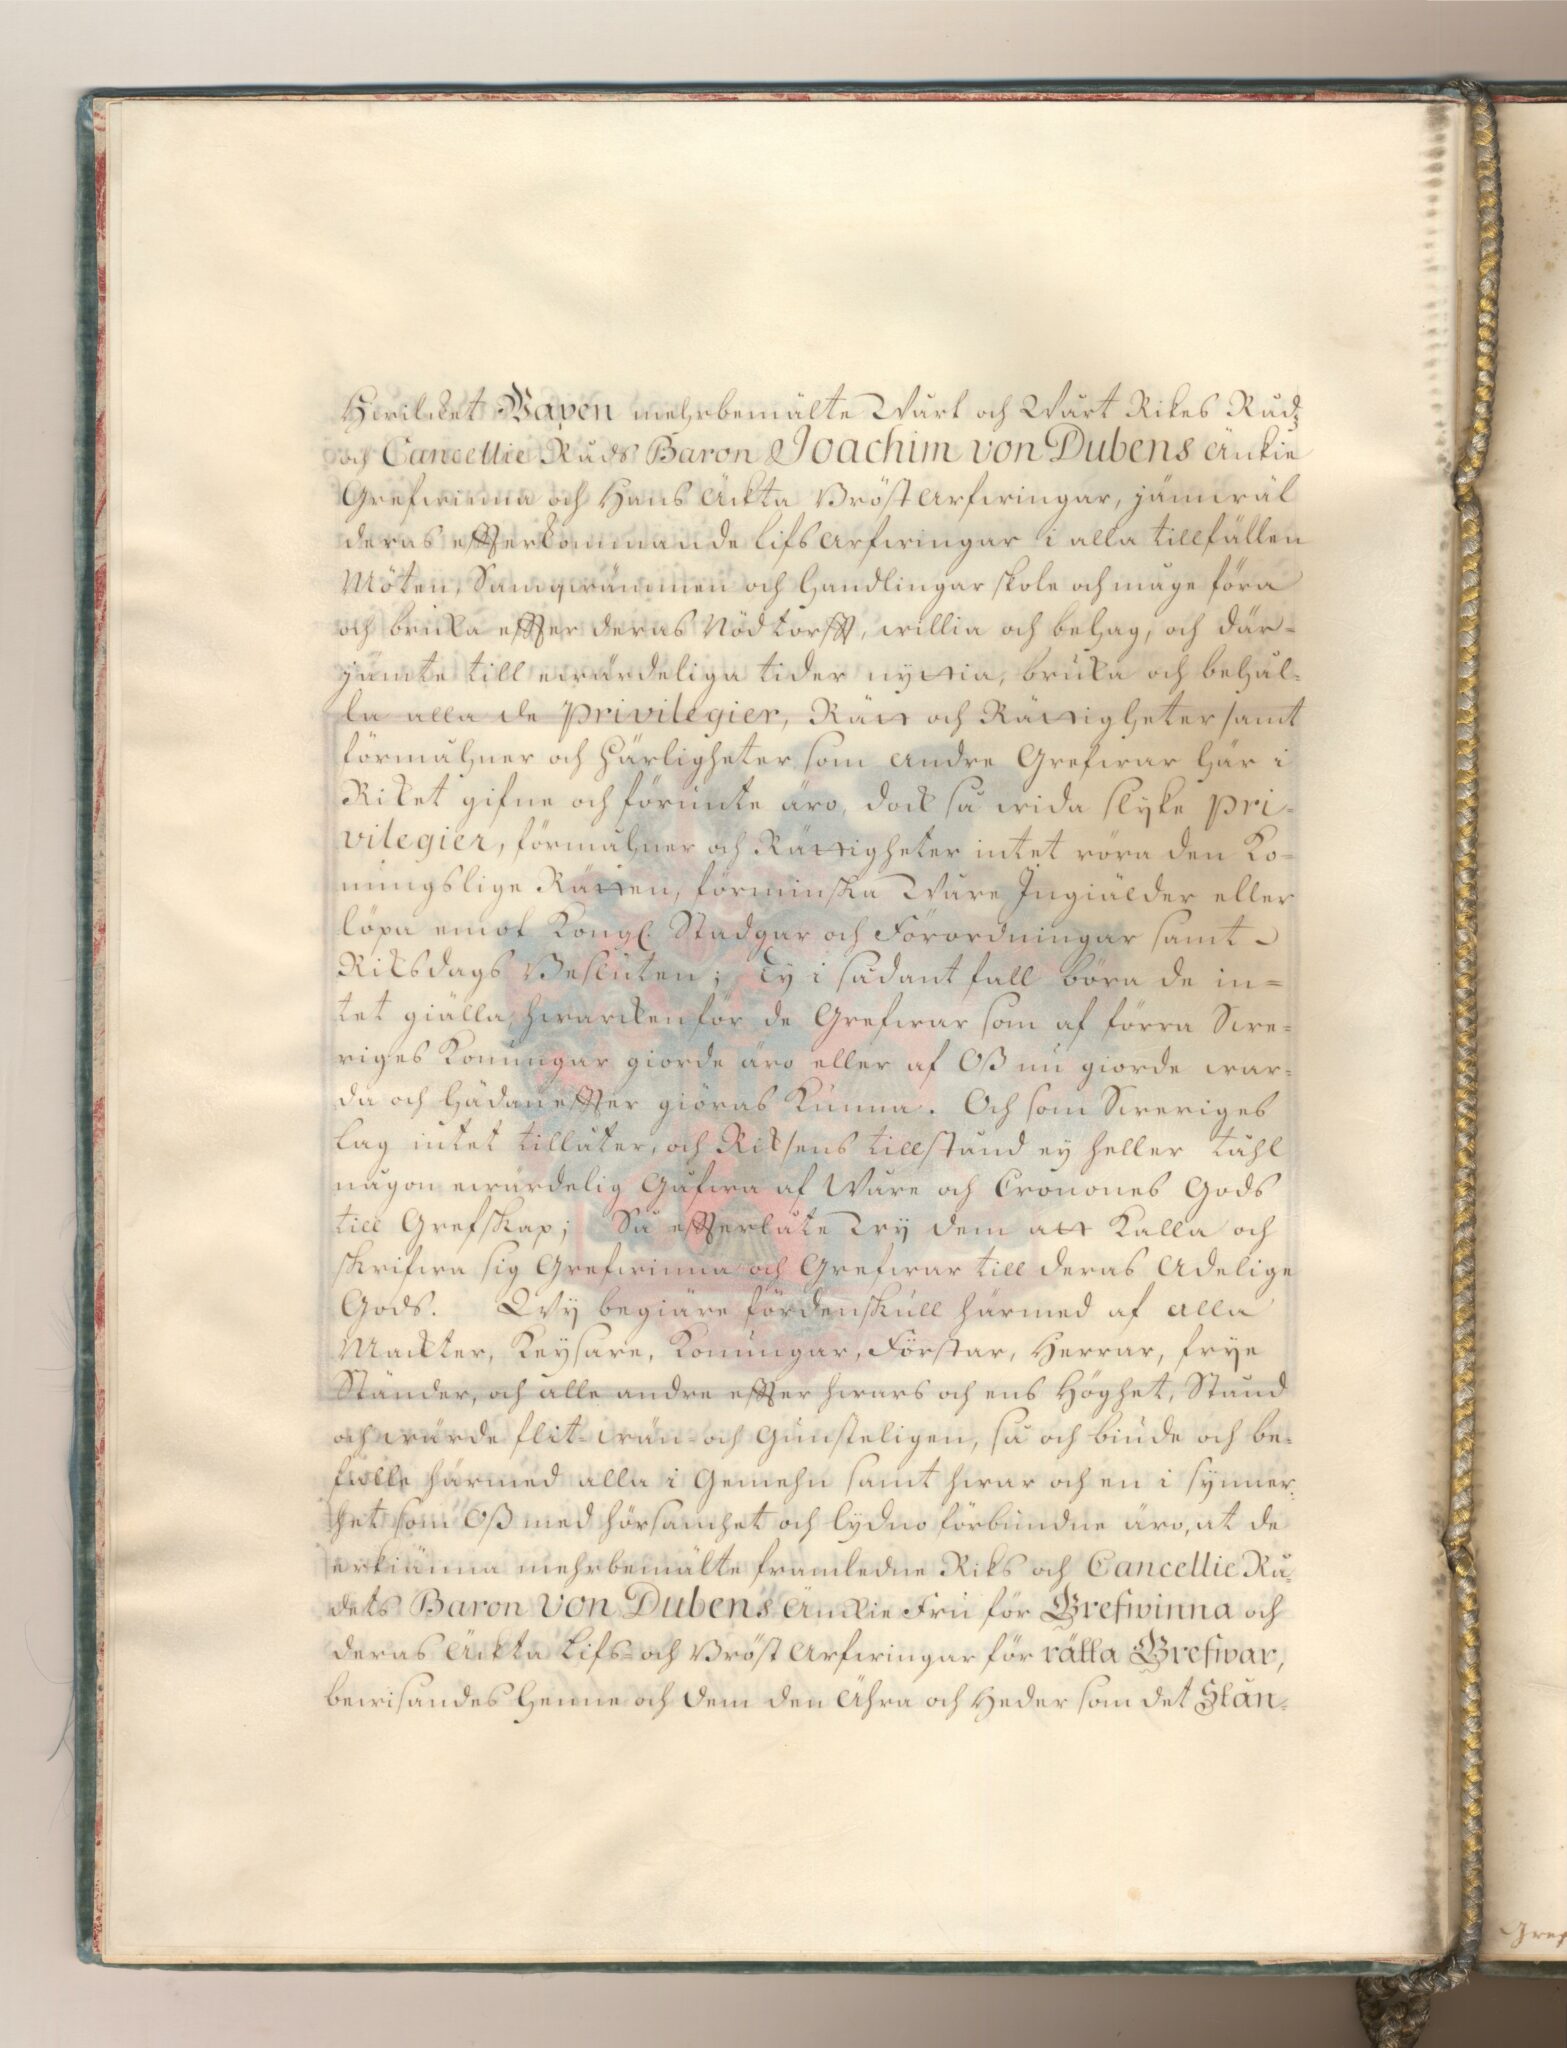 Hwilcket Vapen mehrbemälte Wårt och Wårt Rikes Rådz
och Cancellie Råds Baron Joachim von Dubens Änkie
Grefwinna och Hans Äckta Bröst Arfwingar, jämwäl
deras efterkommande Lifs Arfwingar i alla tillfällen
Möten, Samqwämmen och Handlingar skole och måge föra
och bruka efter deras Nödtorft, willia och behag, och där-
jämte till ewärdeliga tider nyttia, bruka och behål-
la alla de Privilegier, Rätt och Rättigheter samt
förmåhner och Härligheter som andre Grefwar här i
Riket gifne och förunte äro, dock så wida slyke Pri-
vilegier, förmåhner och Rättigheter intet röra den Ko-
nungslige Rätten, förminska Wåre Ingiälder eller
löpa emot Kongl. Stadgar och Förordningar samt
Riksdags Besluten; Ty i sådant fall böra de in-
tet giälla, hwarcken för de Grefwar som af förra Swe-
riges Konungar giorde äro eller af Oß nu giorde war-
da och hädanefter giöras kunna. Och som Sweriges
Lag intet tillåter, och Riksens tillstånd ey heller tåhl
någon ewärdelig Gåfwa af Wåre och Cronones Gods
till Grefskap; Så efterlåte Wy dem att kalla och
skrifwa sig Grefwinna och Grefwar till deras Adelige
Gods. Wy begiäre fördenskull härmed af alla
Mackter, Keysare, Konungar, Förstar, Herrar, frye
Ständer, och alle andre efter hwars och ens Höghet, Stånd
och wärde flit- wän- och Gunsteligen, så och biude och be-
falle härmed alla i Gemehn samt hwar och en i synner-
het som Oß med hörsamhet och lydno förbundne äro, at de
erkiänna mehrbemälte framledne Riks och Cancellie Rå-
dets Baron Von Dubens Änckie Fru för Grefwinna och
deras Äckta Lifs- och Bröst Arfwingar för rätta Grefwar,
bewisandes henne och dem den Ähra och Heder som det Stån-